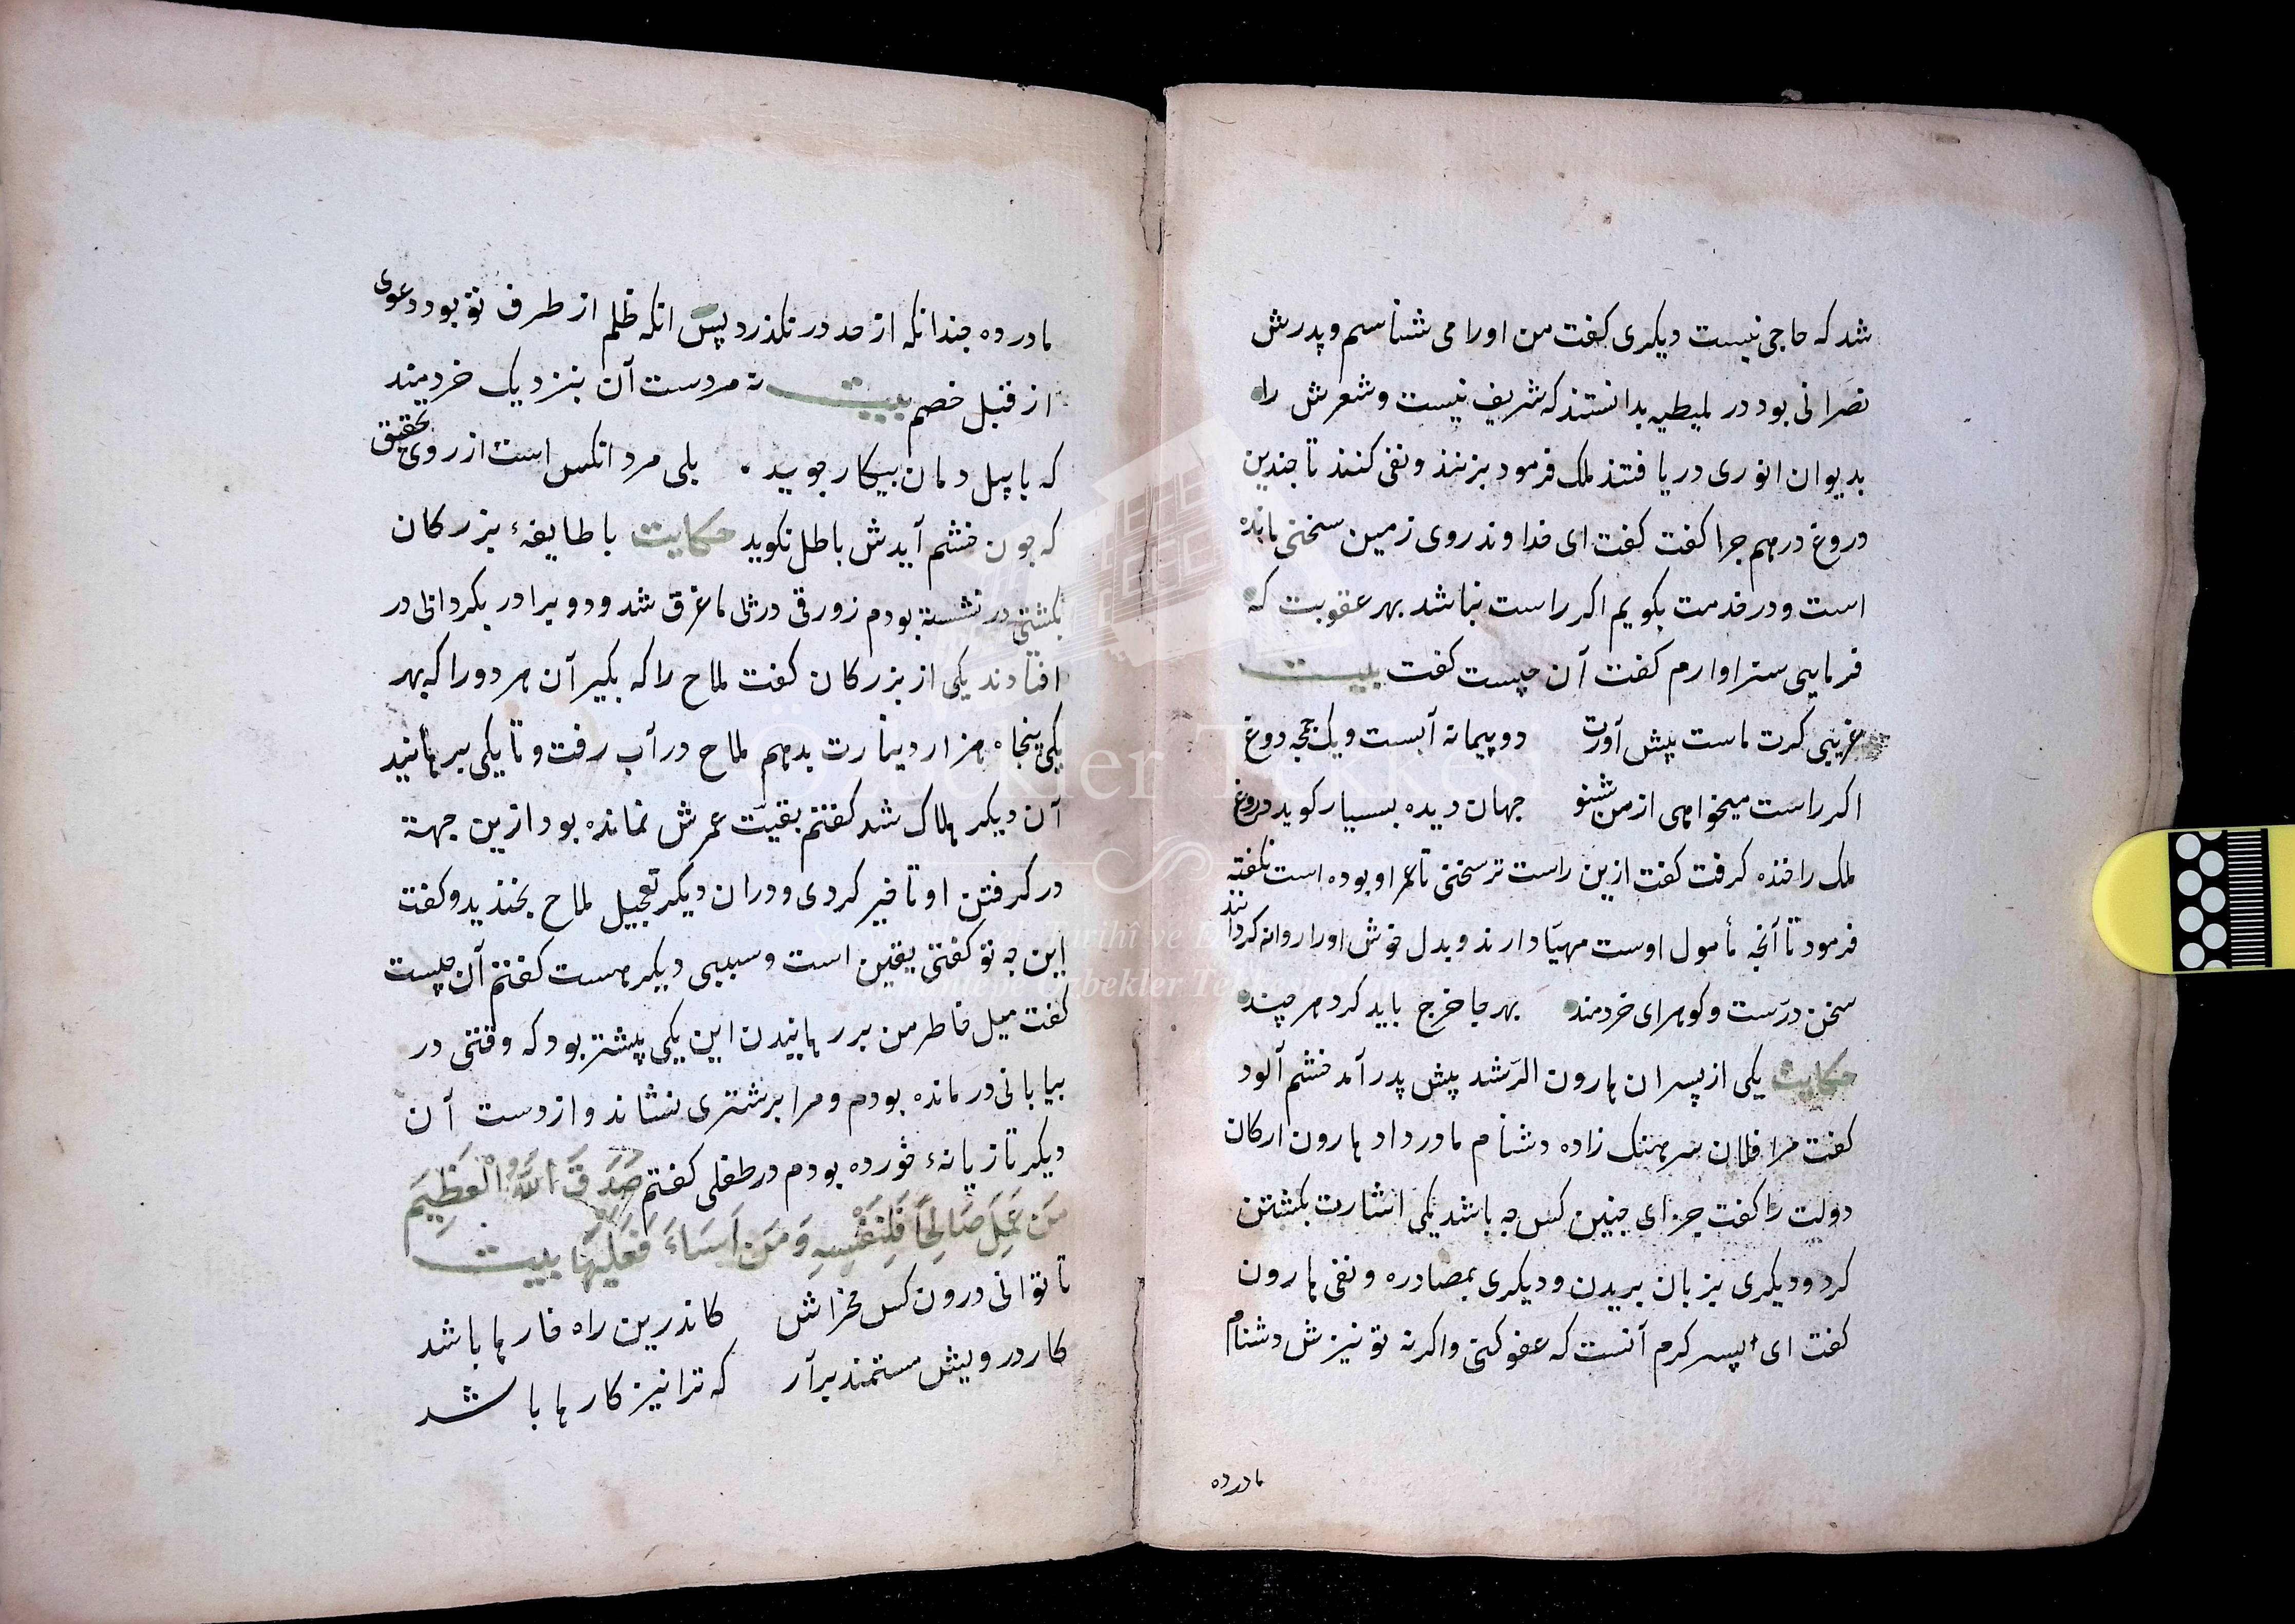 شد که حاجی نیست دیکری کفت من اورا می شناسم و پدرش
نصرانی بود در لمیطیه بدانستند که شریف نیست و شعرش را
بدیوان انوری دریافتند ملک فرمود بزنند و نفی کنند تا چندین
دروغ درهم چرا کفت کفت ای خداوند روی زمین سخنی مانده
است و در خدمت بکویم اکر راست نباشد بهر عقوبت که
فرمایی سزاوارم کفت آن چیست کفت بیت
غریبی کرت ماست پیش آورت دو پیمانه آبست و یک چمچه دوغ
اکر راست میخواهی از من شنو جهان دیده بسیار کوید دروغ
ملک را خنده کرفت کفت ازین راست تر سخنی تا عمر او بوده است نکفته
فرمود تا آنچه مأمول اوست مهیّا دارند و بدل خوش اورا روانه کردانند
سخن درّست و کوهر ای خردمند بهر جا خرج باید کرد هر چند
حکایت یکی از پسران هارون الرّشد پیش پدر آمد خشم آلود
کفت مرا فلان سرهنک زاده دشنام مادر داد هارون ارکان
دولت را کفت جزای چنین کس چه باشد یکی اشارت بکشتن
کرد و دیکری بزبان بریدن و دیکری بمصادره و نفی هارون
کفت ای پسر کرم آنست که عفو کنی واکرنه تو نیزش دشنام
مادر ده
مادر ده چندانکه از حد در نکذرد پس انکه ظلم از طرف تو بود دعوی
از قبل خصم بیت نه مردست آن بنزدیک خردمند
که با پیل دمان پیکار جوید بلی مرد انکس است از روی تحقیق
که چون خشم آیدش باطل نکوید حکایت با طایفهٔ بزرکان
بکشتی در نشسته بودم زورقی درپی ما غرق شد و دو برادر بکردابی در
افتادند یکی از بزرکان کفت ملاح را که بکیر آن هر دو را که بهر
یکی پنجاه هزار دینارت بدهم ملاح در آب رفت و تا یکی برهانید
آن دیکر هلاک شد کفتم بقیّت عمرش نمانده بود ازین جهة
در کرفتن او تأخیر کردی و در ان دیکر تعجیل ملاح بخندید و کفت
این چه تو کفتی یقین است و سببی دیکر هست کفتم آن چیست
کفت میل خاطر من بر رهانیدن این یکی پیشتر بود که وقتی در
بیابانی در مانده بودم و مرا بر شتری نشاند و از دست آن
دیکر تازیانهٔ خورده بودم در طفلی کفتم صَدَقَ اللّٰهُ الْعَظِيمَ
مَن عَمِلَ صَالِحًا فَلِنَفْسِهِ وَمَن اَسَاءَ فَعَلَيْهَا بیت
تا توانی درون کس مخراش کاندرین راه خارها باشد
کار درویش مستمند برآر که ترا نیز کارها باشد
Özbekler Tekkesi